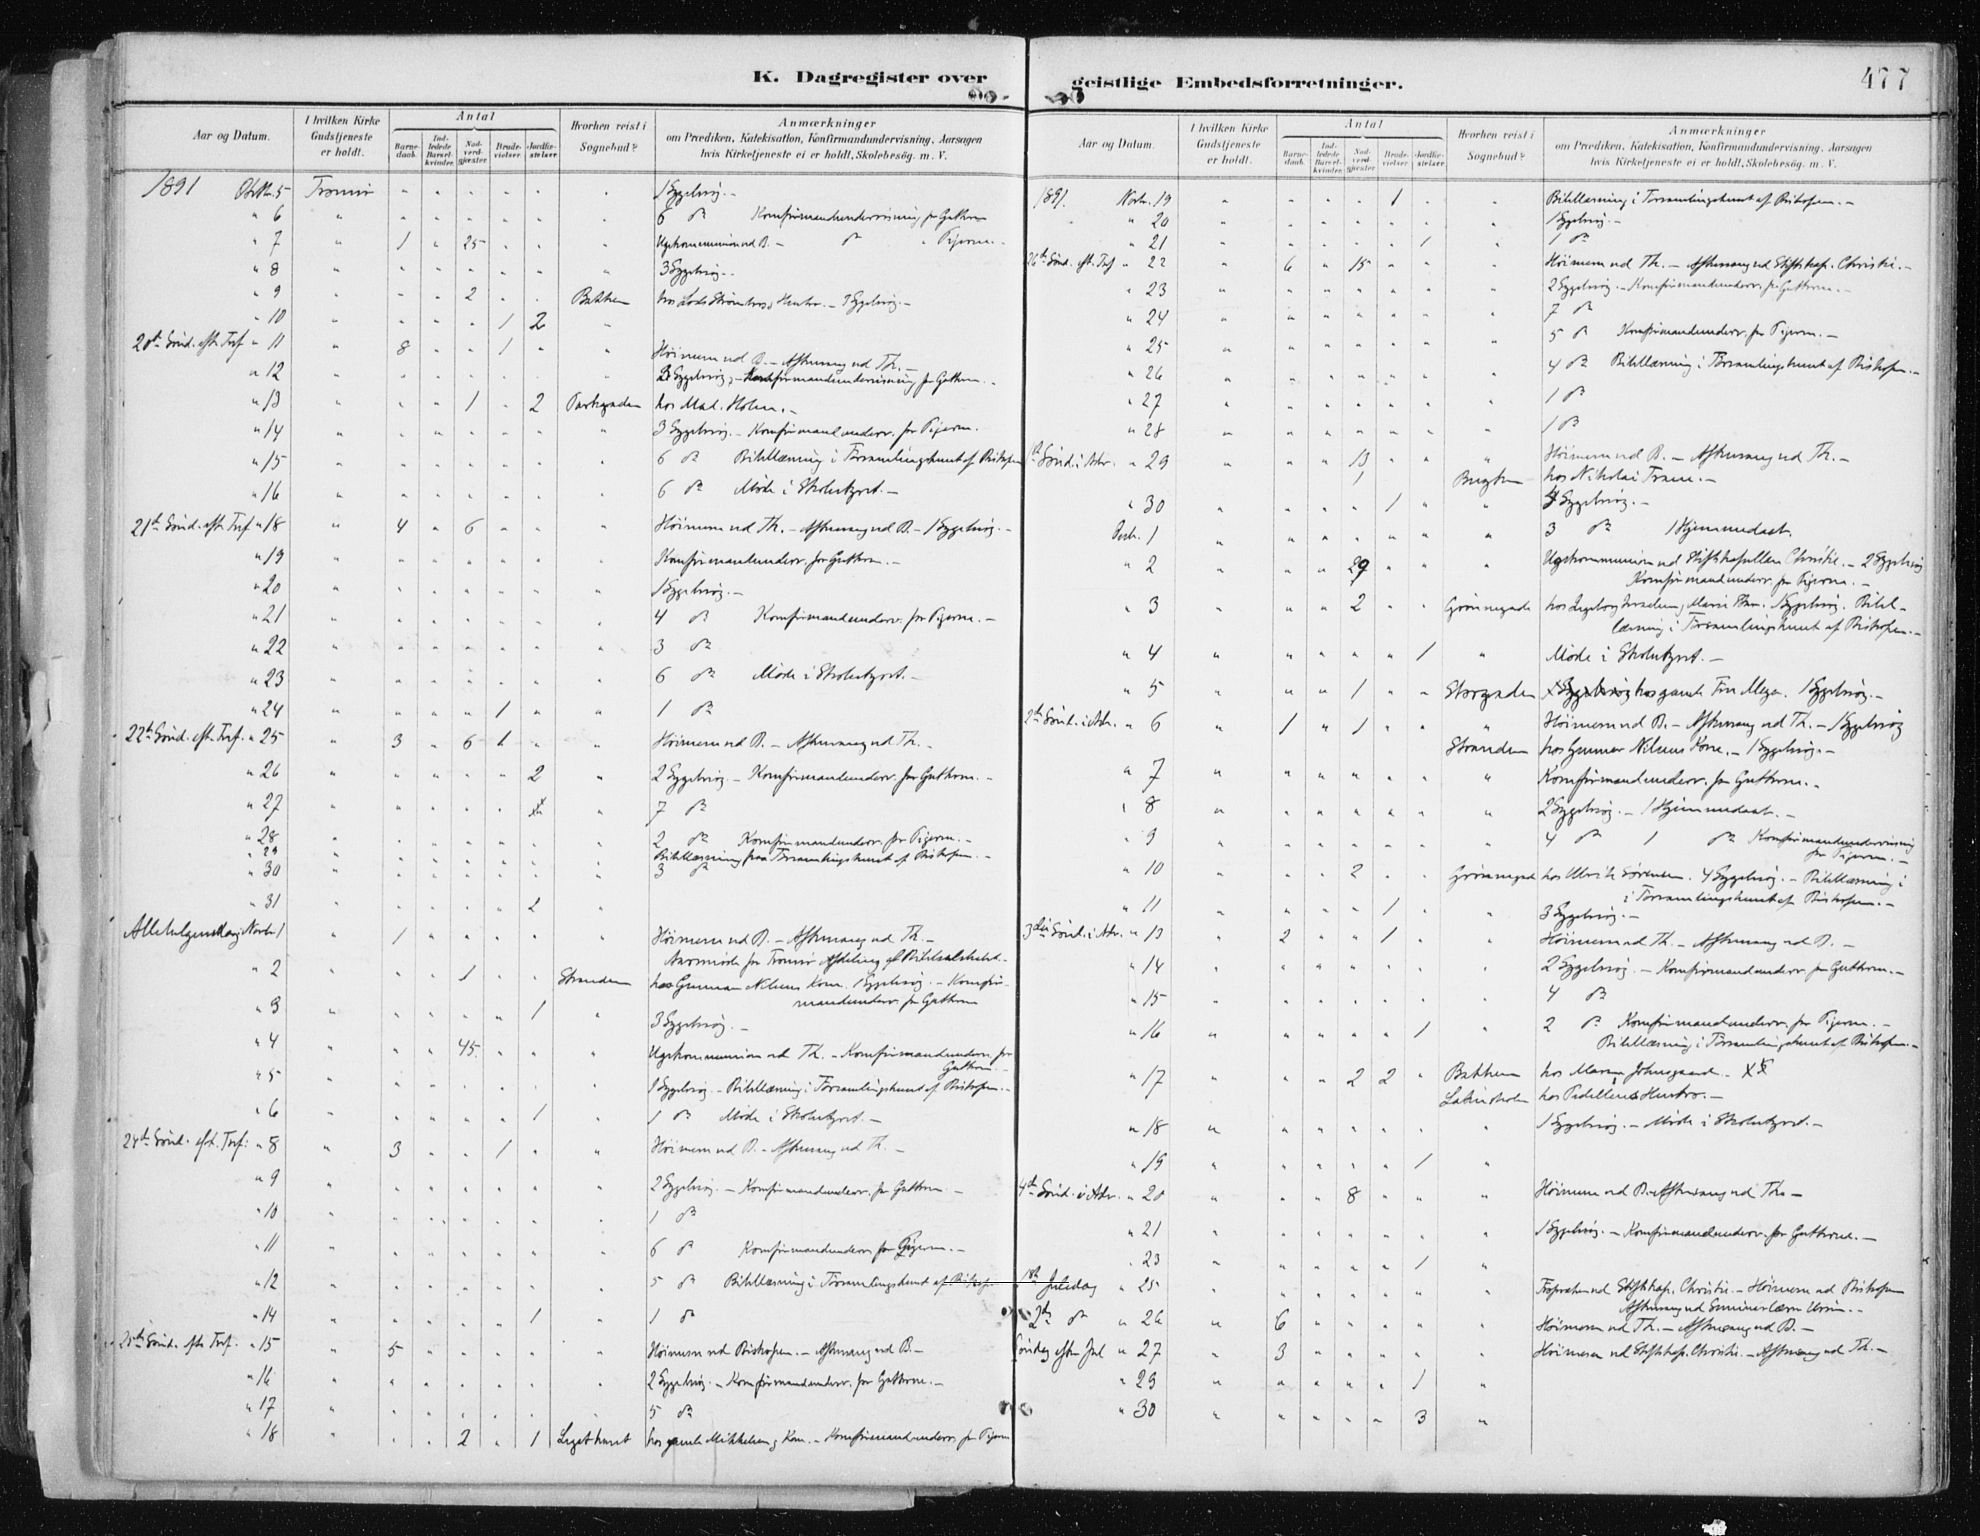 K. Dagregister over geistlige Embedsforretninger.
477
Aar og Datum.
I hvilken Kirke Gudstjeneste er holdt.
Antal
Barne-daab.
Ind-ledede Barsel-kvinder.
Nad-verd-gjester
Brude-vielser.
Jordfæ-stelser.
Hvorhen reist i Sognebud?
Anmærkninger
om Prædiken, Katekisation, Konfirmandundervisning, Aarsagen
hvis Kirketjeneste ei er holdt, Skolebesög. m. V.
1891 Oktbr. 5 Tromsø " " " " " " 1 Sygebesøg. -
" 6 " " " " " " " 6 do Konfirmandundervisning for Gutterne
" 7 " 1 " 25 " " " Ugekommunion ved B. - do " Pigerne. -
" 8 " " " " " " " 3 Sygebesøg. -
" 9 " " " 2 " " Bakken hos Lods Hustru. - Sygebesøg. -
" 10 " " " " 1 2 "
20de Sønd. eft. Tref. " 11 " 8 " " 1 " " Høimesse ved B. - Aftensang ved Th. -
" 12 " " " " " " " 3 Sygebesøg. - Konfirmandundervisning for Gutterne. -
" 13 " " " 1 " 2 Parkgaden hos Mad. Holm. -
" 14 " " " " " " " 3 Sygebesøg. - Konfirmandunderv. for Pigerne.
" 15 " " " " " " " 6 do Bibellæsning i Forsamlingshuset af Biskopen
" 16 " " " " " " " 6 do Møde i Skolestyret. -
21de Sønd. eft. Tref. " 18 " 4 " 6 " " " Høimesse ved Th. - Aftensang ved B. - 1 Sygebesøg. -
" 19 " " " " " " " Konfirmandunderv. for Gutterne. -
" 20 " " " " " " " 1 Sygebesøg. -
" 21 " " " " " " " 4 do Konfirmandunderv. for Pigerne. -
" 22 " " " " " " " 3 do
" 23 " " " " " " " 6 do Møde i Skolestyret. -
" 24 " " " " 1 " " 1 do
22de Sønd. eft. Tref. " 25 " 3 " 6 1 " " Høimesse ved B. - Aftensang ved Th. -
" 26 " " " " " 2 " 2 Sygebesøg. - Konfirmandunderv. for Gutterne. -
" 27 " " " " " " 7 do
" 28 " " " " " " " 2 do Konfirmandunderv. for Pigerne. -
" 29 " " " " " " " Bibellæsning i Forsamlingshuset af Biskopen. -
" 30 " " " " " " " 3 do
" 31 " " " " " 2 "
Allehelgensdag Novbr. 1 " 1 " " " " " Høimesse ved B. - Aftensang ved Th. -
Aarsmøde for Tromsø Afdeling af Bibelselskabet. -
" 2 " " " 1 " " Stranden hos Gunnar Nilsens Kone. 1 Sygebesøg. - Konfir-
mandunderv. for Gutterne
" 3 " " " " " 1 " 3 Sygebesøg. -
" 4 " " " 45. " " " Ugekommunion ved Th. - Konfirmandunderv. for
Gutterne. -
" 5 " " " " " " " 1 Sygebesøg. - Bibellæsning i Forsamlingshuset af Biskopen. -
" 6 " " " " " 1 " 1 do Møde i Skolestyret. -
24de Sønd. eft. Tref: " 8 " 3 " " 1 " " Høimesse ved B. - Aftensang ved Th. -
" 9 " " " " " " " 2 Sygebesøg. - Konfirmandunderv. for Gutterne -
" 10 " " " " " " " 1 do
" 11 " " " " " " " 6 do Konfirmandunderv. for Pigerne. -
" 12 " " " " " " " 5 do Bibellæsning i Forsamlingshuset af Biskopen
" 14 " " " " " 1 " 1 do
25de Sønd. eft. Tref. " 15 " 5 " " " " " Høimesse ved Biskopen. - Aftensang ved B. -
" 16 " " " " " " " 2 Sygebesøg. - Konfirmandunderv. for Gutterne. -
" 17 " " " " " " " 5 do
" 18 " " " 2 " 1 hos gamle Mikkelsen og Kone. - Konfirmandunderv. for Pigerne
Aar og Datum.
I hvilken Kirke Gudstjeneste er holdt.
Antal
Barne-daab.
Ind-ledede Barsel-kvinder.
Nad-verd-gjester
Brude-vielser.
Jordfæ-stelser.
Hvorhen reist i Sognebud?
Anmærkninger
om Prædiken, Katekisation, Konfirmandundervisning, Aarsagen
hvis Kirketjeneste ei er holdt, Skolebesög. m. V.
1891. Novbr. 19 " " " " 1 " " Bibellæsning i Forsamlingshuset af Biskopen. -
" 20 " " " " " " " 1 Sygebesøg. -
" 21 " " " " " 1 " 1 do
26de Sønd. eft. Tref " 22 " 6 " 15 " " " Høimesse ved Th. - Aftensang ved Stiftskap. Christie. -
" 23 " " " " " " " 2 Sygebesøg. - Konfirmandunderv. for Gutterne. -
" 24 " " " " " " " 7 do
" 25 " " " " " " " 5 do Konfirmandunderv. for Pigerne. -
" 26 " " " " " " " 4 do Bibellæsning i Forsamlingshuset af Biskopen. -
" 27 " " " " " " " 1 do
" 28 " " " " " " " 1 do
1ste Sønd. i Adv. " 29 " " " 13 " " " Høimesse ved B. - Aftensang ved Th. -
1 hos Nikolai
" 30 " " " " 1 " " 4 Sygebesøg. -
Desbr. 1 " " " " " " " 3 do 1 Hjemmedaab.
" 2 " " " 29 " " " Ugekommunion ved Stiftskapellan Christie. - 2 Sygebesøg
Konfirmandunderv. for Pigerne. -
" 3 " " " 2 " " Grønnegade hos Marie 1 Sygebesøg. Bibel-
læsning i Forsamlingshuset af Biskopen. -
" 4 " " " " " 1 " Møde i Skolestyret. -
" 5 " " " 1 " " Storgaden hos gamle 1 Sygebesøg. -
2den Sønd. i Adv. " 6 " 1 " 1 " " " Høimesse ved B. - Aftensang ved Th. - 1 Sygebesøg
Stranden hos Gunnar Nilsens Kone. - 1 Sygebesøg. -
" 7 " " " " " " " Konfirmandunderv. for Gutterne. -
" 8 " " " " " " " 2 Sygebesøg. - 1 Hjemmedaab. -
" 9 " " " " " " " 4 do 1 do Konfirmandundervisning
for Pigerne. -
" 10 " " " 2 " " Grønnegade hos Ulrik Sørensen. 4 Sygebesøg. - Bibellæsning i
i Forsamlingshuset af Biskopen. -
" 11 " " " " 1 " " 3 Sygebesøg. -
3die Sønd. i Adv. " 13 " 2 " " 1 " " Høimesse ved Th. - Aftensang ved B. -
" 14 " " " " " " " 2 Sygebesøg. - Konfirmandunderv. for Gutterne. -
" 15 " " " " " " " 4 do
" 16 " " " " " 1 " 2 do Konfirmandunderv. for Pigerne. -
Bibellæsning i Forsamlingshuset af Biskopen. -
" 17 " " " 2 2 " Bakken hos
hos Hustru. -
" 18 " " " " " " " 1 Sygebesøg. - Møde i Skolestyret. -
" 19 " " " " " 1 "
4de Sønd. i Adv. " 20 " " " 8 " " " Høimesse ved B. - Aftensang ved Th. -
" 21 " " " " " " " 1 Sygebesøg. - Konfirmandunderv. for Gutterne. -
" 23 " " " " " 1 "
1ste Juledag " 25 " " " " " " " Froprædiken ved Stiftskap. Christie. - Høimesse ved Biskopen
Aftensang ved Seminarlærer
2den do " 26 " 6 " " " " " Høimesse ved Th. - Aftensang ved B. -
Søndag efter Jul " 27 " 3 " " " " " Høimesse ved Stiftskap. Christie. - Aftensang ved Th. -
" 29 " " " " " 1 "
" 30 " " " " " 3 "